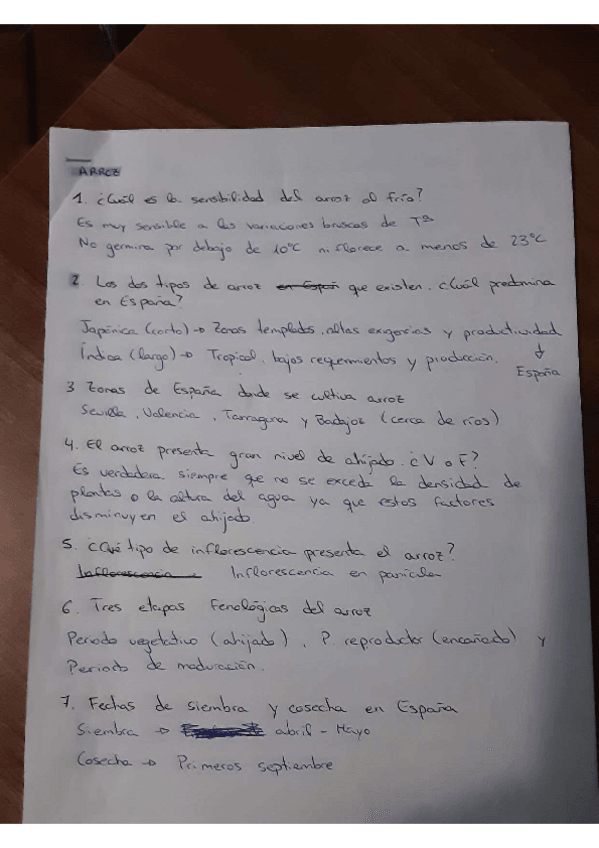 ARROZ
1. ¿Cuál es la sensibilidad del arroz al frío?
Es muy sensible a las variaciones bruscas de Tªs
No germina por debajo de 10ºC ni florece a menos de 23ºC
2. Los dos tipos de arroz en Españ que existen. ¿Cuál predomina
en España?
Japónica (corto) → Zonas templadas, altas exigencias y productividad
Índica (largo) → Tropical, bajos requerimientos y producción.
↓
España
3 Zonas de España donde se cultiva arroz
Sevilla, Valencia, Tarragona y Badajoz (cerca de ríos)
4. El arroz presenta gran nivel de ahijado. ¿V o F?
Es verdadera siempre que no se exceda la densidad de
plantas o la altura del agua ya que estos factores
disminuyen el ahijado.
5. ¿Qué tipo de inflorescencia presenta el arroz?
Inflorescencia Inflorescencia en panícula
6. Tres etapas Fenológicas del arroz
Periodo vegetativo (ahijado), P. reproductor (encañado) y
Periodo de maduración.
7. Fechas de siembra y cosecha en España
Siembra → abril - Mayo
Cosecha → Primeros septiembre